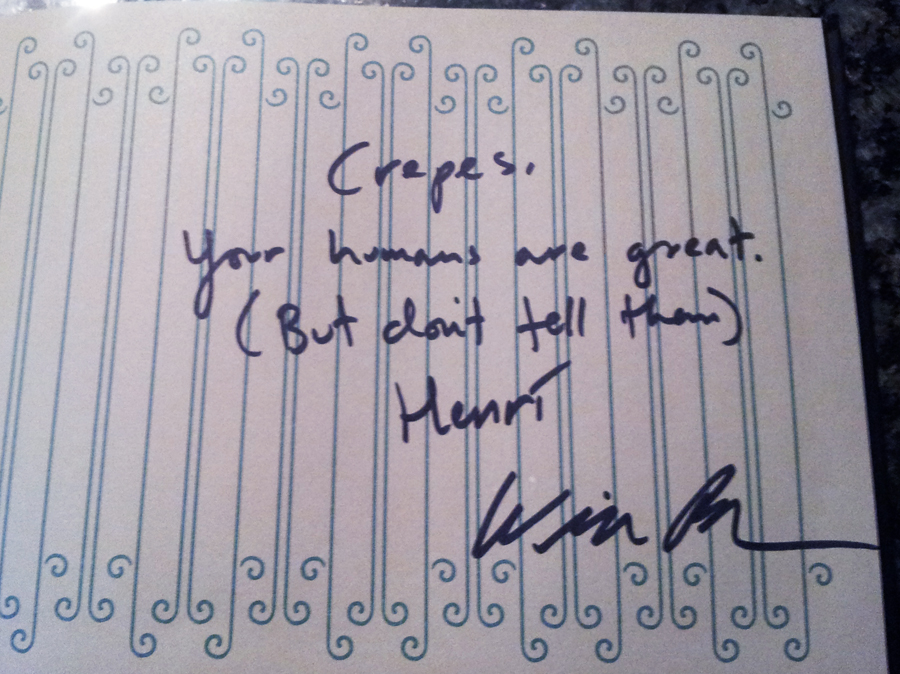 Crepes.
Your humans are great.
(But don't tell them)
Henri